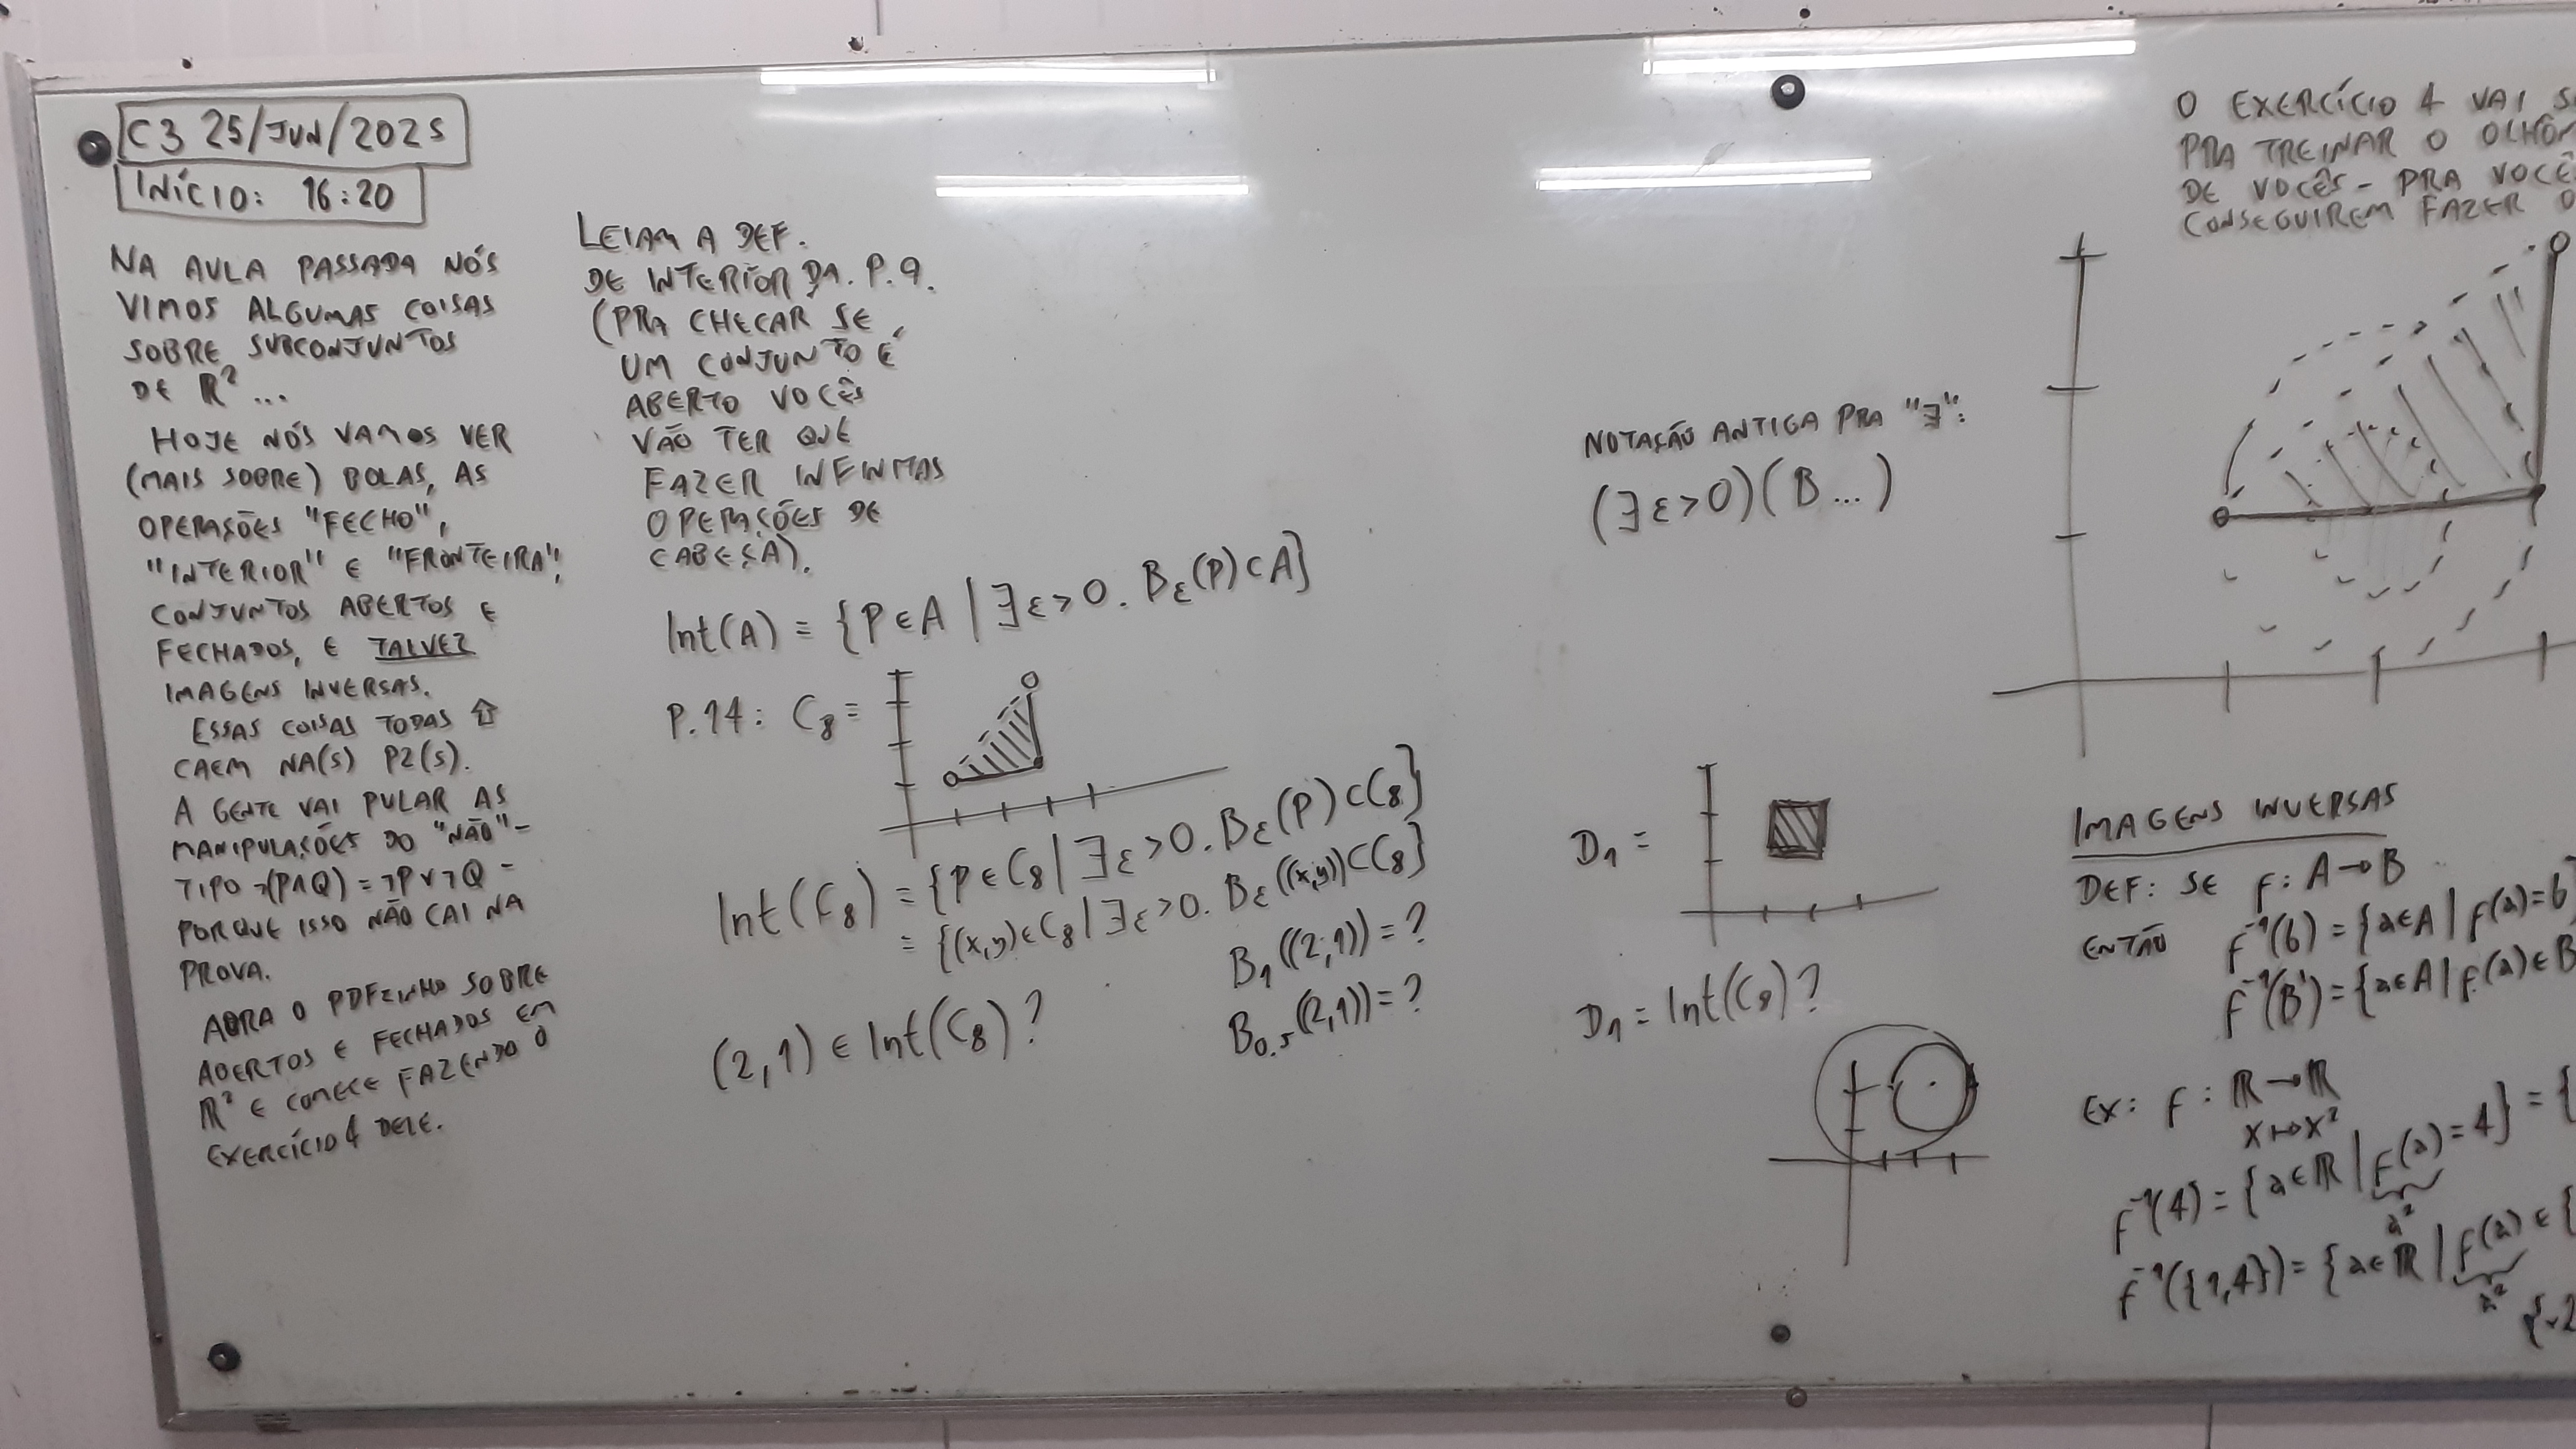 C3 25/JUN/2025
INÍCIO: 16:20
NA AULA PASSADA NÓS
VIMOS ALGUMAS COISAS
SOBRE SUBCONJUNTOS
DE ℝ² ...
HOJE NÓS VAMOS VER
(MAIS SOBRE) BOLAS, AS
OPERAÇÕES "FECHO",
"INTERIOR" E "FRONTEIRA",
CONJUNTOS ABERTOS E
FECHADOS, E TALVEZ
IMAGENS INVERSAS.
ESSAS COISAS TODAS ⇧
CAEM NA(S) P2(S).
A GENTE VAI PULAR AS
MANIPULAÇÕES DO "NÃO" -
TIPO ¬(P∧Q) = ¬P∨¬Q -
PORQUE ISSO NÃO CAI NA
PROVA.
ABRA O PDFZINHO SOBRE
ABERTOS E FECHADOS EM
ℝ² E COMECE FAZENDO O
EXERCÍCIO 4 DELE.
LEIAM A DEF.
DE INTERIOR DA P.9.
(PRA CHECAR SE
UM CONJUNTO É
ABERTO VOCÊS
VÃO TER QUE
FAZER INFINITAS
OPERAÇÕES DE
CABEÇA).
Int(A) = {P∈A | ∃ε>0. Bε(P)⊂A}
P.14: C₈ =
Int(C₈) = {P∈C₈ | ∃ε>0. Bε(P)⊂C₈}
= {(x,y)∈C₈ | ∃ε>0. Bε((x,y))⊂C₈}
B₁((2,1)) = ?
(2,1) ∈ Int(C₈)?
B₀.₅(2,1)) = ?
NOTAÇÃO ANTIGA PRA "∃":
(∃ε>0)(B...)
D₁ =
D₁ = Int(C₈)?
O EXERCÍCIO 4 VAI
PRA TREINAR O
DE VOCÊS - PRA
CONSEGUIREM FAZER
IMAGENS INVERSAS
DEF: SE f: A→B
ENTÃO f⁻¹(b) = {a∈A | f(a)=b
f⁻¹(B') = {a∈A | f(a)∈B
EX: f: ℝ→ℝ
x↦x²
f⁻¹(4) = {a∈ℝ | f(a)=4} = {
a²
f⁻¹({1,4}) = {a∈ℝ | f(a)∈{
a²
{-2